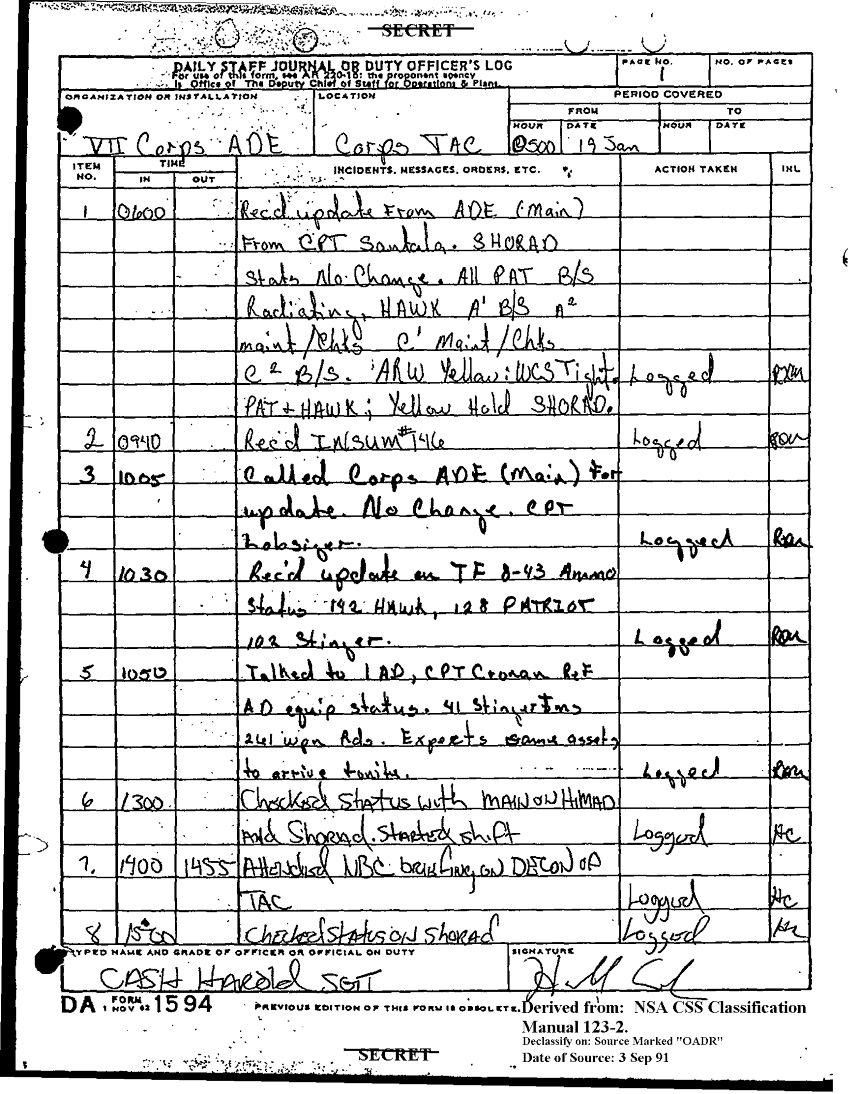 SECRET
DAILY STAFF JOURNAL OR DUTY OFFICER'S LOG
For use of this form, see AR 220-15: the proponent agency
is Office of The Deputy Chief of Staff for Operations & Plans.
PAGE NO.
1
NO. OF PAGES
ORGANIZATION OR INSTALLATION
VII Corps ADE
LOCATION
Corps TAC
PERIOD COVERED
FROM
TO
HOUR
DATE
HOUR
DATE
0500
19 Jan
ITEM NO.
TIME
IN
OUT
INCIDENTS, MESSAGES, ORDERS, ETC.
ACTION TAKEN
INL
1 0600 Rec'd update From ADE (Main)
From CPT Santala. SHORAD
Stats No Change. All PAT B/S
Radiating, HAWK A' B/S A²
maint/Chks C' Maint/Chks
C² B/S. ARW Yellow: WCS Tight Logged
PAT + HAWK; Yellow Hold SHORAD.
2 0940 Rec'd INSUM #146 Logged
3 1005 Called Corps ADE (Main) For
update. No Change. CPT
Lobsiger. Logged
4 1030 Rec'd update on TF 8-43 Ammo
Status 192 HAWK, 128 PATRIOT
102 Stinger. Logged
5 1050 Talked to 1AD, CPT Cronan Ref
AD equip status. 41 Stinger Tms
261 wpn Rds. Expects some assets
to arrive tonite. Logged
6 1300 Checked Status with MAIN ON HIMAD
And Shorad. Started shift Logged HC
7. 1400 1455 Attended NBC briefing on DECON OP
TAC Logged HC
8 1500 Checked Status ON Shorad Logged
TYPED NAME AND GRADE OF OFFICER OR OFFICIAL ON DUTY
CASH HAROLD SGT
SIGNATURE
DA FORM 1594
1 NOV 62
PREVIOUS EDITION OF THIS FORM IS OBSOLETE.
Derived from: NSA CSS Classification
Manual 123-2.
Declassify on: Source Marked "OADR"
Date of Source: 3 Sep 91
SECRET